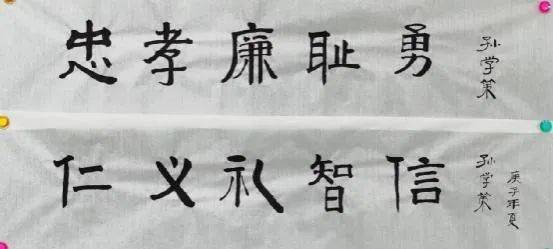 忠孝廉耻勇
孙学策
仁义礼智信
孙学策
庚子年夏